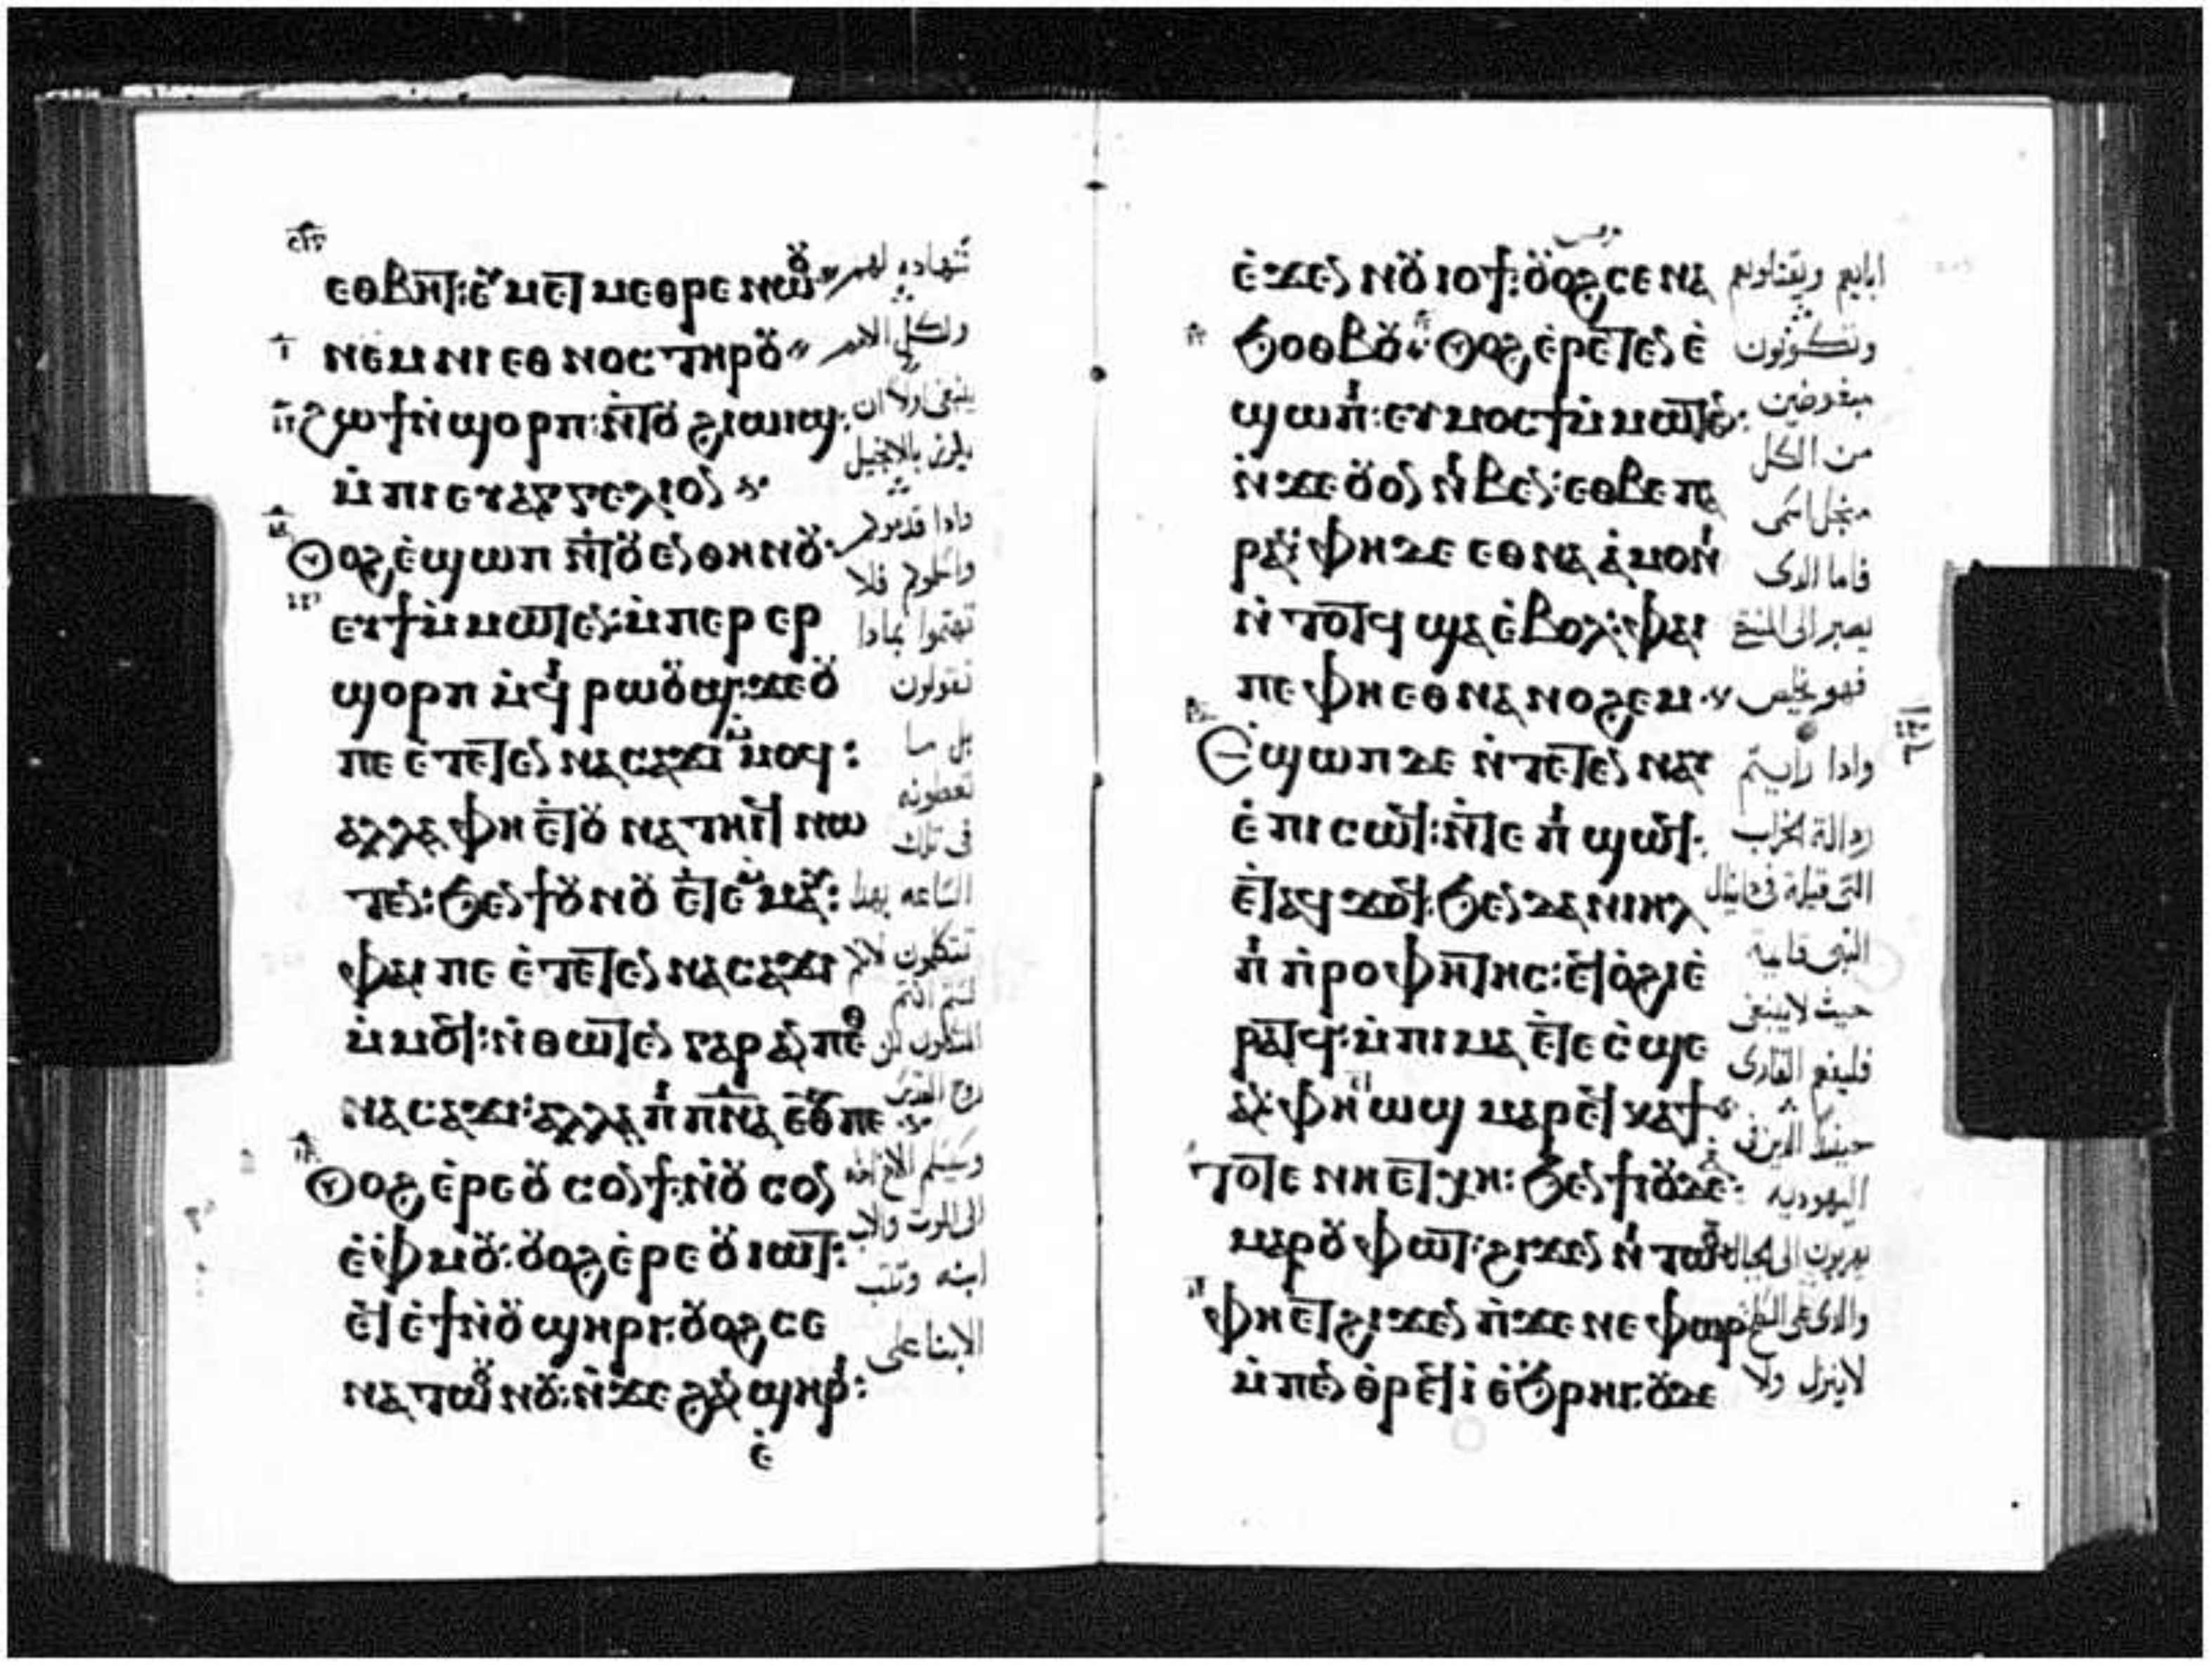 ⲉⲑⲃⲏⲧ: ⲉⲩⲙⲉⲧⲙⲉⲑⲣⲉ ⲛⲱⲟⲩ
ⲛⲉⲙ ⲛⲓⲉⲑⲛⲟⲥ ⲧⲏⲣⲟⲩ
ϩⲱϯ ⲛ̀ϣⲟⲣⲡ: ⲛ̀ⲧⲟⲩϩⲓⲱⲓϣ:
ⲙ̀ⲡⲓⲉⲩⲁⲅⲅⲉⲗⲓⲟⲛ
ⲟⲩⲟϩ ⲉ̀ϣⲱⲡ ⲛ̀ⲧⲟⲩⲉⲛⲑⲏⲛⲟⲩ:
ⲉⲩϯ ⲙ̀ⲙⲱⲧⲉⲛ: ⲙ̀ⲡⲉⲣ ⲉⲣ
ϣⲟⲣⲡ ⲙ̀ϥⲓ ⲣⲱⲟⲩϣ: ϫⲉ ⲟⲩ
ⲡⲉ ⲉ̀ⲧⲉⲧⲉⲛⲛⲁⲥⲁϫⲓ ⲙ̀ⲙⲟϥ:
ⲁⲗⲗⲁ ⲫⲏ ⲉ̀ⲧⲟⲩⲛⲁⲧⲏⲓϥ ⲛⲱ
ⲧⲉⲛ: ϧⲉⲛ ϯⲟⲩⲛⲟⲩ ⲉ̀ⲧⲉⲙⲙⲁⲩ:
ⲫⲁⲓ ⲡⲉ ⲉ̀ⲧⲉⲧⲉⲛⲛⲁⲥⲁϫⲓ
ⲙ̀ⲙⲟϥ: ⲛ̀ⲑⲱⲧⲉⲛ ⲅⲁⲣ ⲁⲛ ⲡⲉⲑ
ⲛⲁⲥⲁϫⲓ: ⲁⲗⲗⲁ ⲡⲓⲡ̅ⲛ̅ⲁ̅ ⲉ̅ⲑ̅ⲩ̅ ⲡⲉ
ⲟⲩⲟϩ ⲉ̀ⲣⲉ ⲟⲩⲥⲟⲛ ϯ ⲛ̀ⲟⲩⲥⲟⲛ
ⲉ̀ⲫⲙⲟⲩ: ⲟⲩⲟϩ ⲉ̀ⲣⲉ ⲟⲩⲓⲱⲧ:
ⲉ̀ϥⲉ̀ϯ ⲛ̀ⲟⲩϣⲏⲣⲓ: ⲟⲩⲟϩ ⲥⲉ
ⲛⲁⲧⲱⲟⲩⲛⲟⲩ: ⲛ̀ϫⲉ ϩⲁⲛϣⲏⲣⲓ:
ⲉ̀
شهاده لهم
ولكل الامم
ينبغي اولا ان
يكرز بالانجيل
واذا قدموكم
واسلموكم فلا
تهتموا بماذا
تقولون
بل ما
تعطونه
في تلك
الساعه بهذا
تتكلمون لانكم
لستم انتم
المتكلمون لكن
روح القدس
وسيسلم الاخ اخاه
الى الموت والاب
ابنه وتثب
الابنا على
ⲉ̀ϫⲉⲛ ⲛⲟⲩⲓⲟϯ: ⲟⲩⲟϩ ⲥⲉⲛⲁ
ϧⲟⲑⲃⲟⲩ: ⲟⲩⲟϩ ⲉ̀ⲣⲉⲧⲉⲛⲉ̀
ϣⲱⲡⲓ: ⲉⲩⲙⲟⲥϯ ⲙ̀ⲙⲱⲧⲉⲛ:
ⲛ̀ϫⲉ ⲟⲩⲟⲛ ⲛⲓⲃⲉⲛ: ⲉⲑⲃⲉ ⲡⲁ
ⲣⲁⲛ: ⲫⲏ ⲇⲉ ⲉⲑⲛⲁⲁ̀ⲙⲟⲛⲓ
ⲛ̀ⲧⲟⲧϥ ϣⲁ ⲉ̀ⲃⲟⲗ: ⲫⲁⲓ
ⲡⲉ ⲫⲏ ⲉⲑⲛⲁⲛⲟϩⲉⲙ
ⲉ̀ϣⲱⲡ ⲇⲉ ⲛ̀ⲧⲉⲧⲉⲛⲛⲁⲩ
ⲉ̀ⲡⲓⲥⲱϥ: ⲛ̀ⲧⲉ ⲡⲓϣⲱϥ:
ⲉ̀ⲧⲁϥϫⲟϥ: ϧⲉⲛ ⲇⲁⲛⲓⲏⲗ
ⲡⲓⲡ̀ⲣⲟⲫⲏⲧⲏⲥ: ⲉϥⲟ̀ϩⲓ ⲉ̀
ⲣⲁⲧϥ: ⲙ̀ⲡⲓⲙⲁ ⲉ̀ⲧⲉ ⲥ̀ϣⲉ
ⲁⲛ: ⲫⲏ ⲉⲧⲱϣ ⲙⲁⲣⲉϥⲕⲁϯ
ⲧⲟⲧⲉ ⲛⲏ ⲉⲧⲭⲏ: ϧⲉⲛ ϯⲓⲟⲩⲇⲉⲁ:
ⲙⲁⲣⲟⲩⲫⲱⲧ: ϩⲓϫⲉⲛ ⲛⲓⲧⲱⲟⲩ
ⲫⲏ ⲉⲧϩⲓϫⲉⲛ ⲡ̀ϫⲉⲛⲉⲫⲱⲣ
ⲙ̀ⲡⲉⲛⲑⲣⲉϥⲓ̀ ⲉ̀ϧⲣⲏⲓ: ⲟⲩⲇⲉ
ابايهم ويقتلونهم
وتكونون
مبغوضين
من الكل
من اجل اسمي
فاما الذي
يصبر الى المنتهى
فهو يخلص
واذا رايتم
رذالة الخراب
التي قيلة في دانيال
النبي قايمة
حيث لا ينبغي
فليفهم القارى
حينئذ الذين في
اليهوديه
يهربون الى الجبال
والذي على السطح
لا ينزل ولا